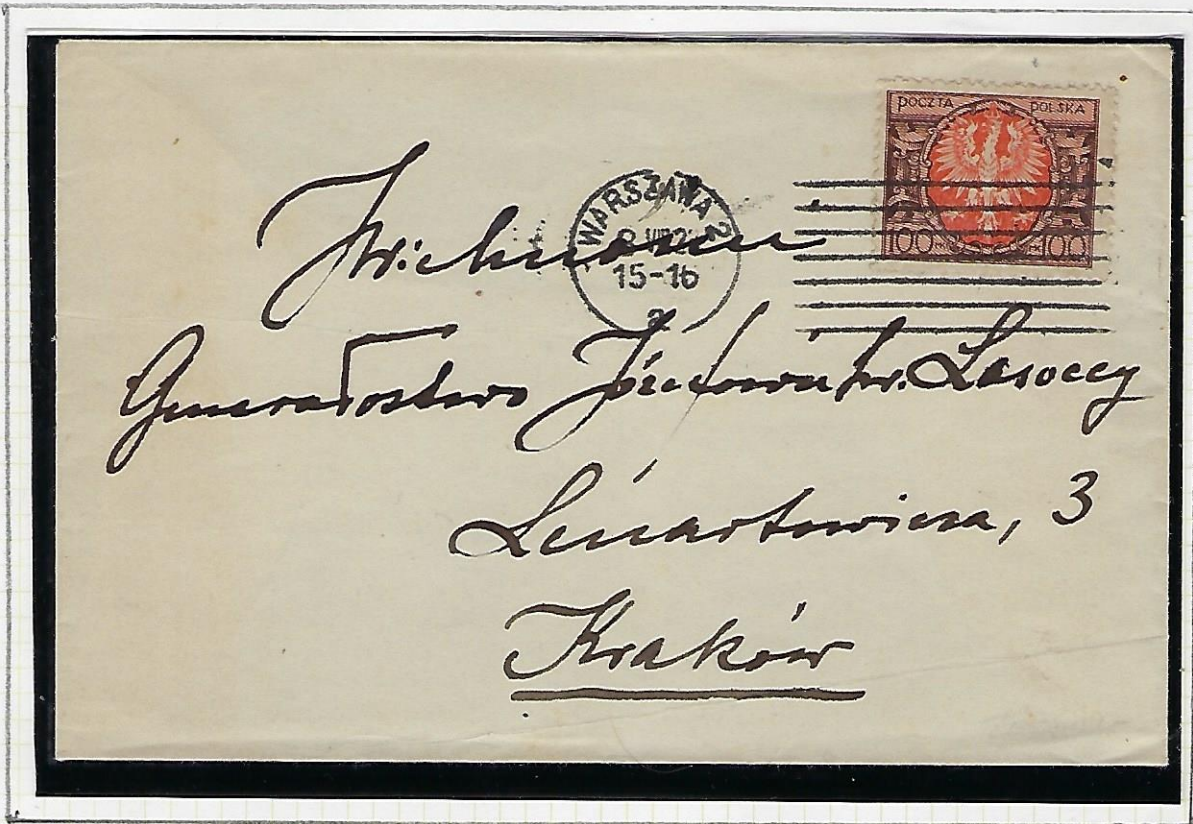 POCZTA POLSKA
100 100
WARSZAWA 2
15-16
JWielmożni
Generałostwo Józefowie hr. Lasoccy
Lenartowicza, 3
Kraków